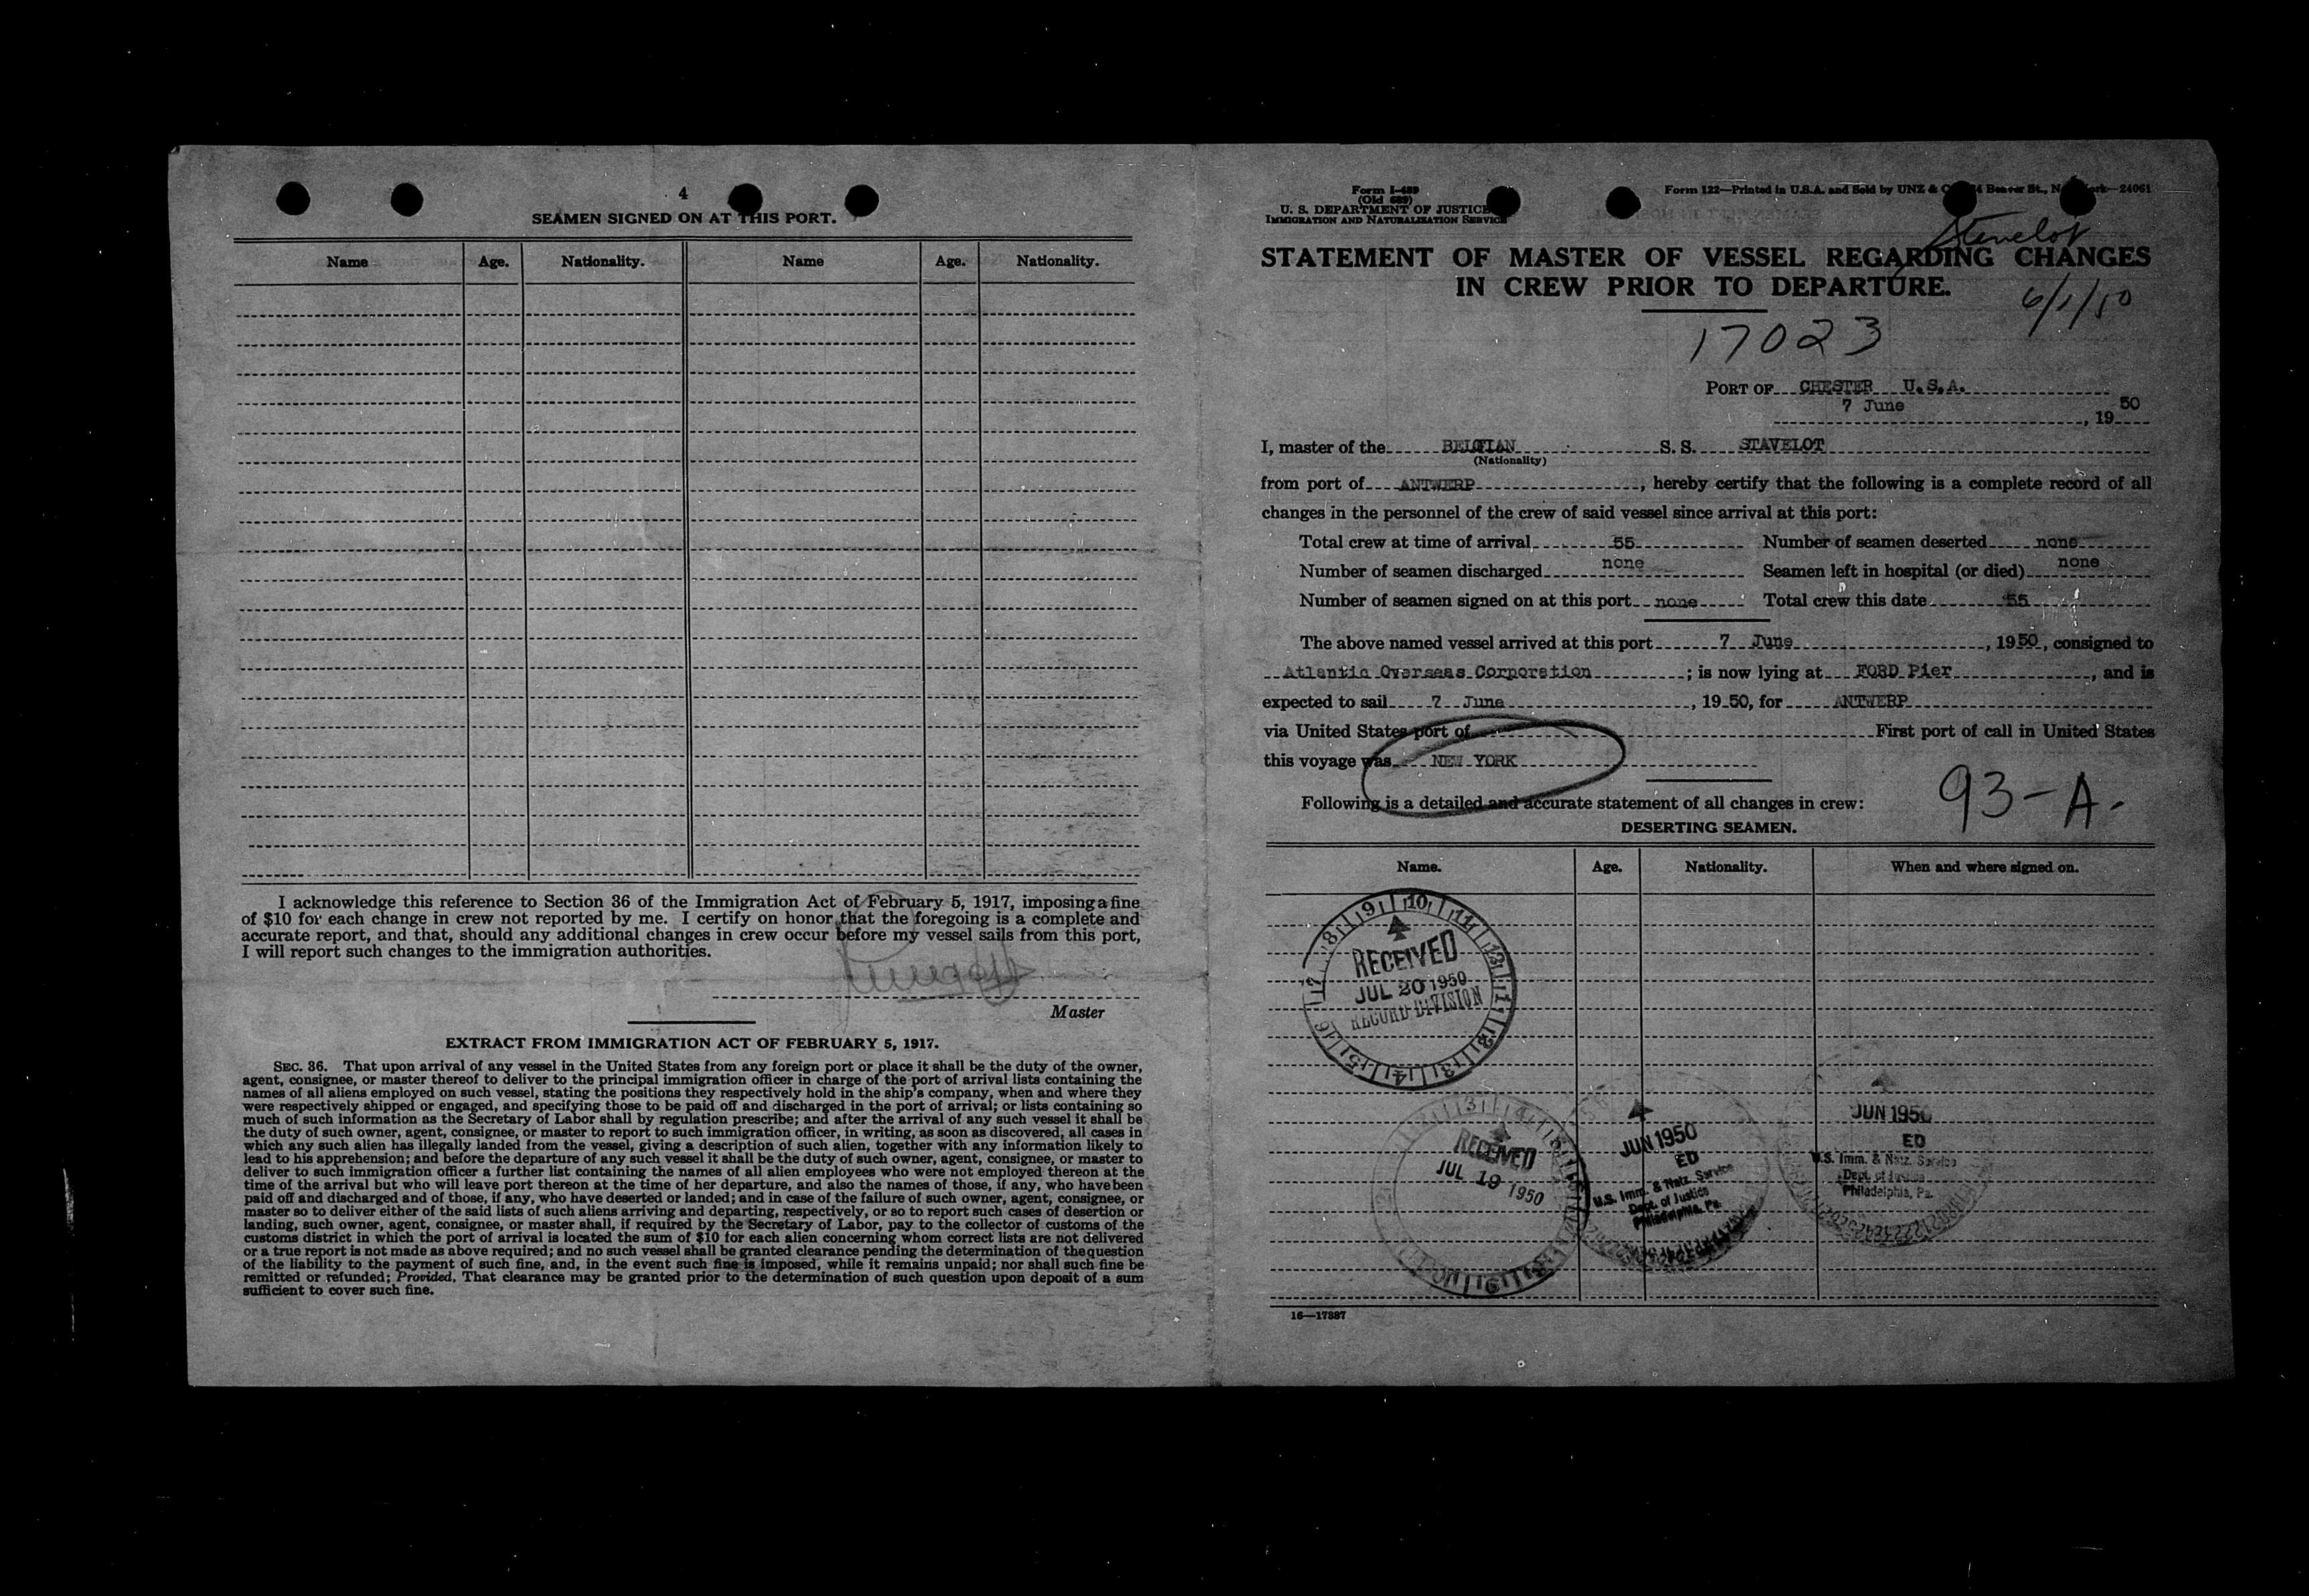 4
SEAMEN SIGNED ON AT THIS PORT.
Name Age. Nationality. Name Age. Nationality.
I acknowledge this reference to Section 36 of the Immigration Act of February 5, 1917, imposing a fine
of $10 for each change in crew not reported by me. I certify on honor that the foregoing is a complete and
accurate report, and that, should any additional changes in crew occur before my vessel sails from this port,
I will report such changes to the immigration authorities.
Master
EXTRACT FROM IMMIGRATION ACT OF FEBRUARY 5, 1917.
SEC. 36. That upon arrival of any vessel in the United States from any foreign port or place it shall be the duty of the owner,
agent, consignee, or master thereof to deliver to the principal immigration officer in charge of the port of arrival lists containing the
names of all aliens employed on such vessel, stating the positions they respectively hold in the ship's company, when and where they
were respectively shipped or engaged, and specifying those to be paid off and discharged in the port of arrival; or lists containing so
much of such information as the Secretary of Labor shall by regulation prescribe; and after the arrival of any such vessel it shall be
the duty of such owner, agent, consignee, or master to report to such immigration officer, in writing, as soon as discovered, all cases in
which any such alien has illegally landed from the vessel, giving a description of such alien, together with any information likely to
lead to his apprehension; and before the departure of any such vessel it shall be the duty of such owner, agent, consignee, or master to
deliver to such immigration officer a further list containing the names of all alien employees who were not employed thereon at the
time of the arrival but who will leave port thereon at the time of her departure, and also the names of those, if any, who have been
paid off and discharged and of those, if any, who have deserted or landed; and in case of the failure of such owner, agent, consignee, or
master so to deliver either of the said lists of such aliens arriving and departing, respectively, or so to report such cases of desertion or
landing, such owner, agent, consignee, or master shall, if required by the Secretary of Labor, pay to the collector of customs of the
customs district in which the port of arrival is located the sum of $10 for each alien concerning whom correct lists are not delivered
or a true report is not made as above required; and no such vessel shall be granted clearance pending the determination of the question
of the liability to the payment of such fine, and, in the event such fine is imposed, while it remains unpaid; nor shall such fine be
remitted or refunded; Provided, That clearance may be granted prior to the determination of such question upon deposit of a sum
sufficient to cover such fine.
Form I-489
(Old 689)
U. S. DEPARTMENT OF JUSTICE
IMMIGRATION AND NATURALIZATION SERVICE
Form 122—Printed in U.S.A. and Sold by UNZ & Beaver St., 24061
Stavelot
STATEMENT OF MASTER OF VESSEL REGARDING CHANGES
IN CREW PRIOR TO DEPARTURE.
6/1/50
17023
PORT OF CHESTER U.S.A.
7 June, 1950
I, master of the BELGIAN S. S. STAVELOT
(Nationality)
from port of ANTWERP, hereby certify that the following is a complete record of all
changes in the personnel of the crew of said vessel since arrival at this port:
Total crew at time of arrival 55 Number of seamen deserted none
Number of seamen discharged none Seamen left in hospital (or died) none
Number of seamen signed on at this port none Total crew this date 55
The above named vessel arrived at this port 7 June, 1950, consigned to
Atlantic Overseas Corporation; is now lying at FORD Pier, and is
expected to sail 7 June, 1950, for ANTWERP
via United States port of First port of call in United States
this voyage was NEW YORK
Following is a detailed and accurate statement of all changes in crew:
93-A-
DESERTING SEAMEN.
Name. Age. Nationality. When and where signed on.
RECEIVED
JUL 20 1950
RECORD DIVISION
RECEIVED
JUL 19 1950
JUN 1950
ED
U.S. Imm. & Natz. Service
Dept. of Justice
Philadelphia, Pa.
JUN 1950
ED
U.S. Imm. & Natz. Service
Dept. of Justice
Philadelphia, Pa.
16—17887